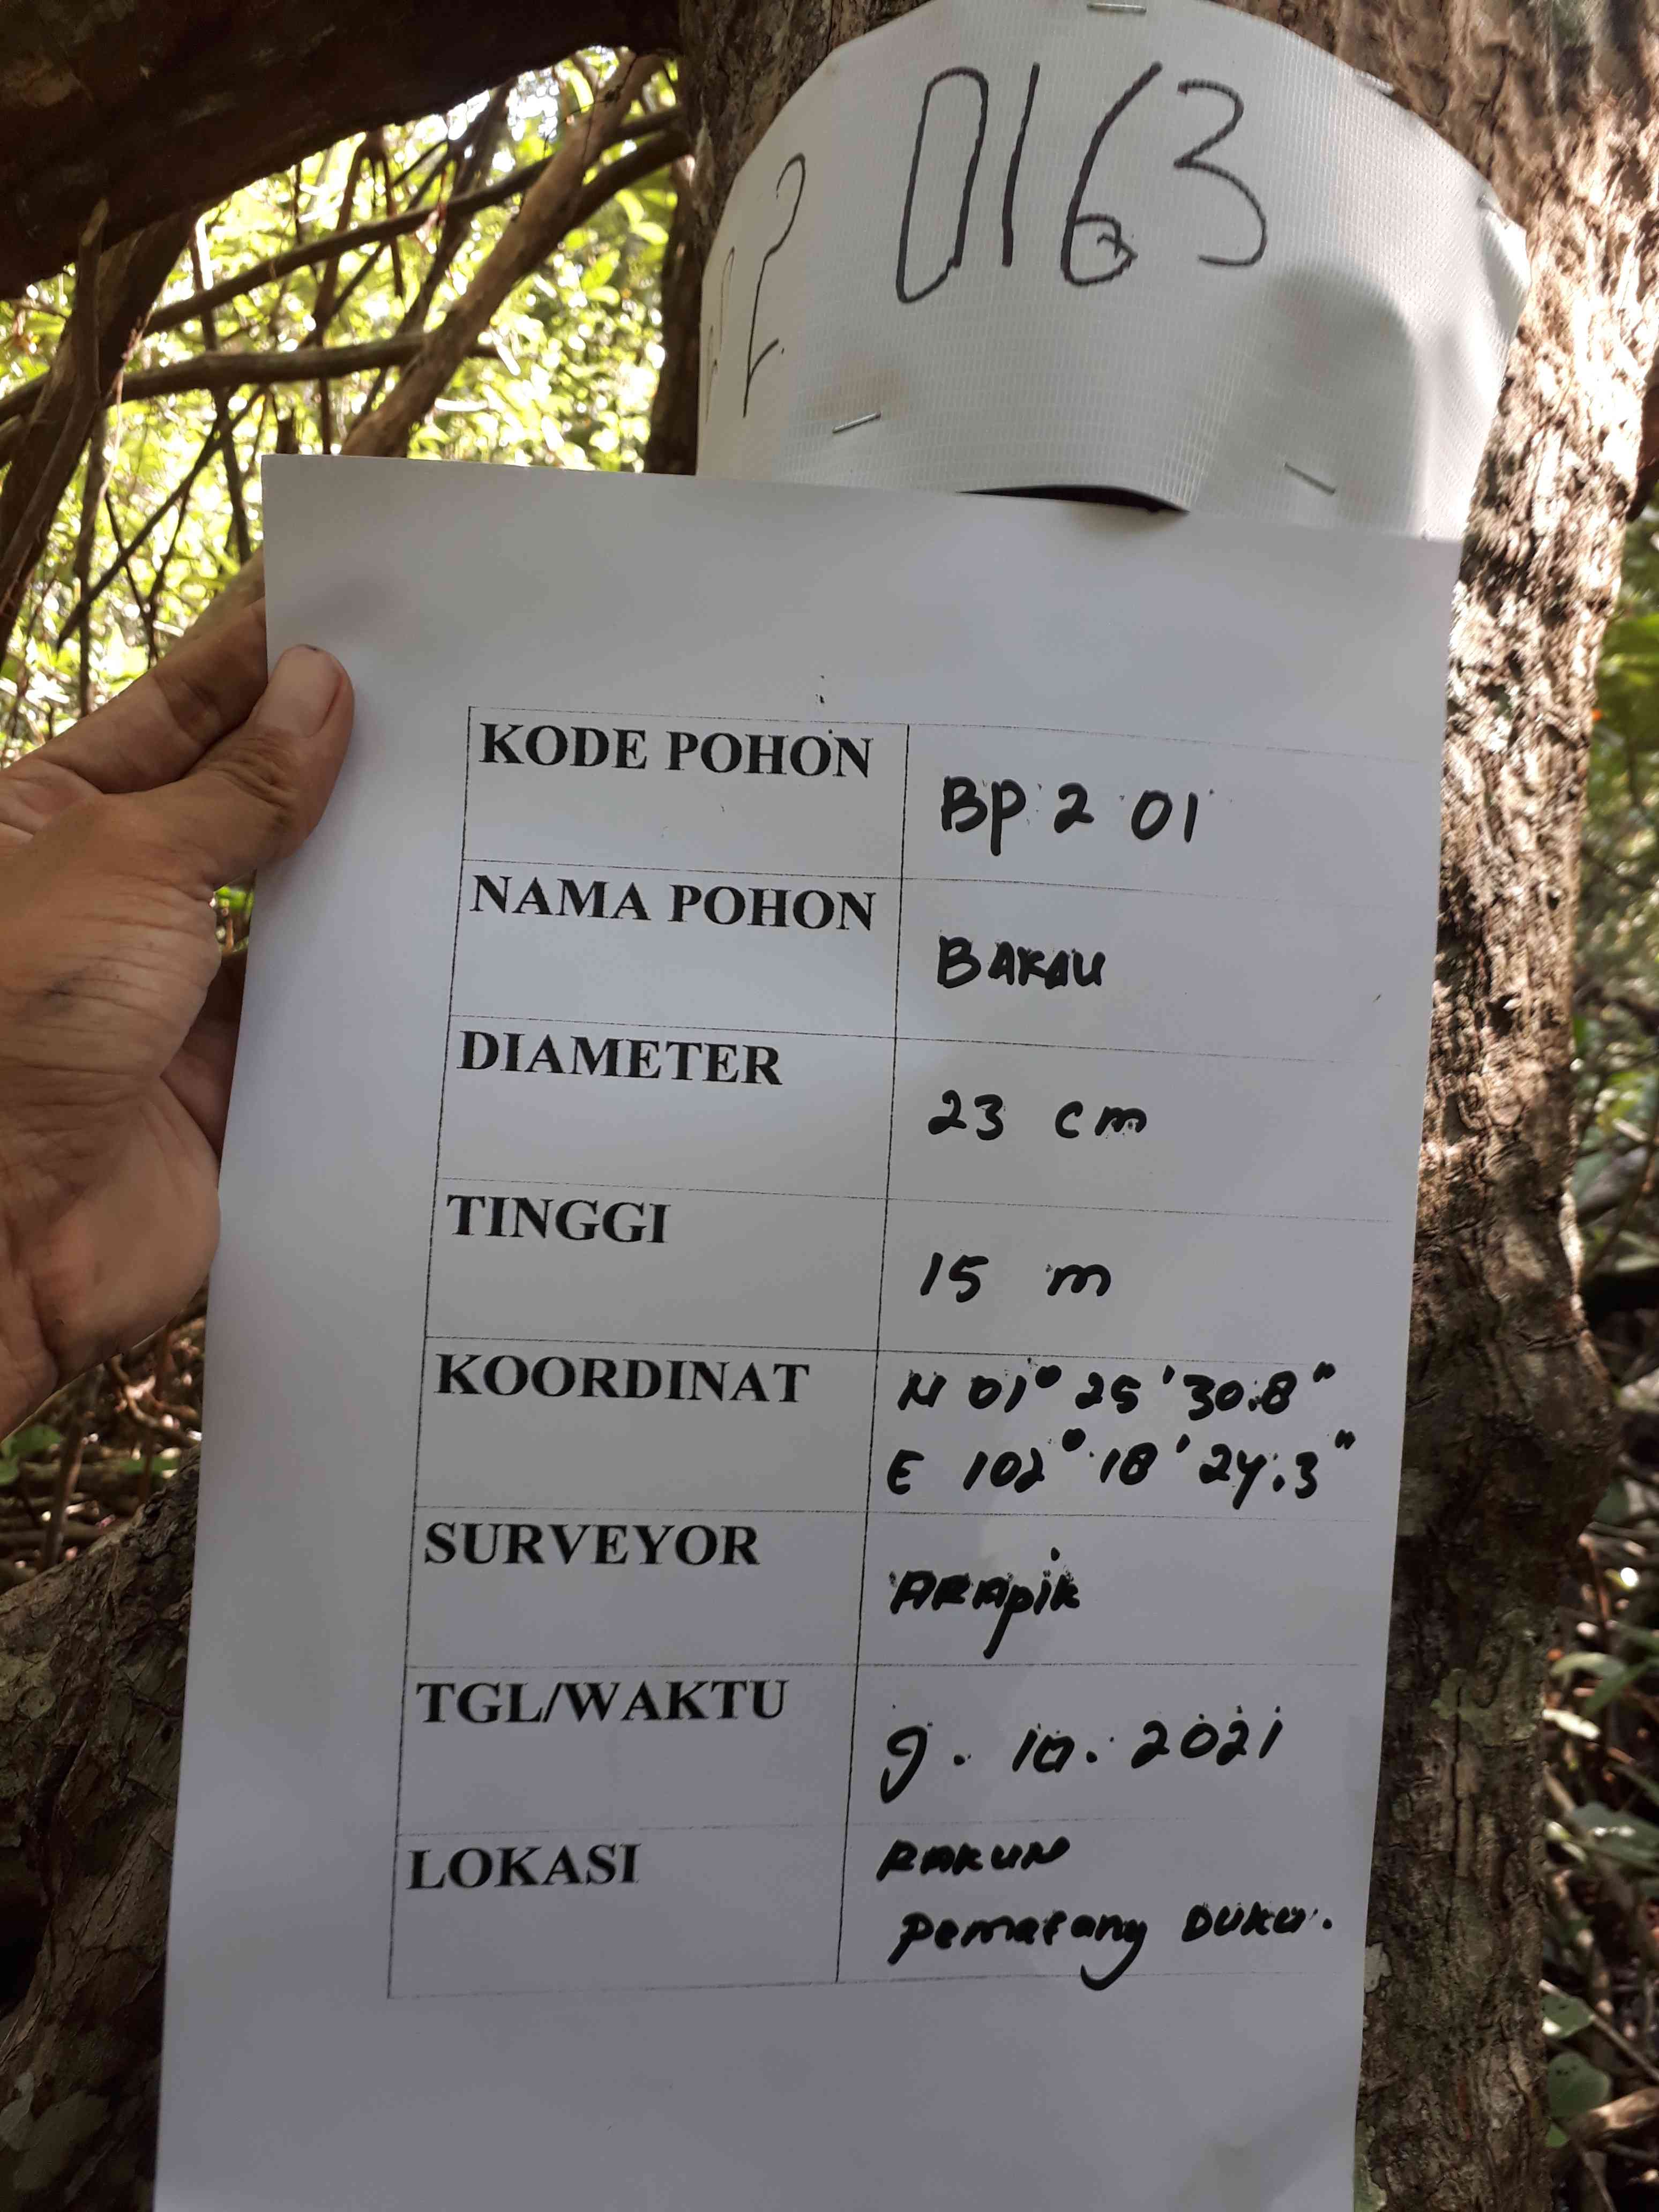 0163
KODE POHON
BP 2 01
NAMA POHON
BAKAU
DIAMETER
23 cm
TINGGI
15 m
KOORDINAT
N 01° 25 ' 30.8 "
E 102° 18 ' 24.3 "
SURVEYOR
ARApik
TGL/WAKTU
9. 10. 2021
LOKASI
RAKUN
Pematang DUKU.